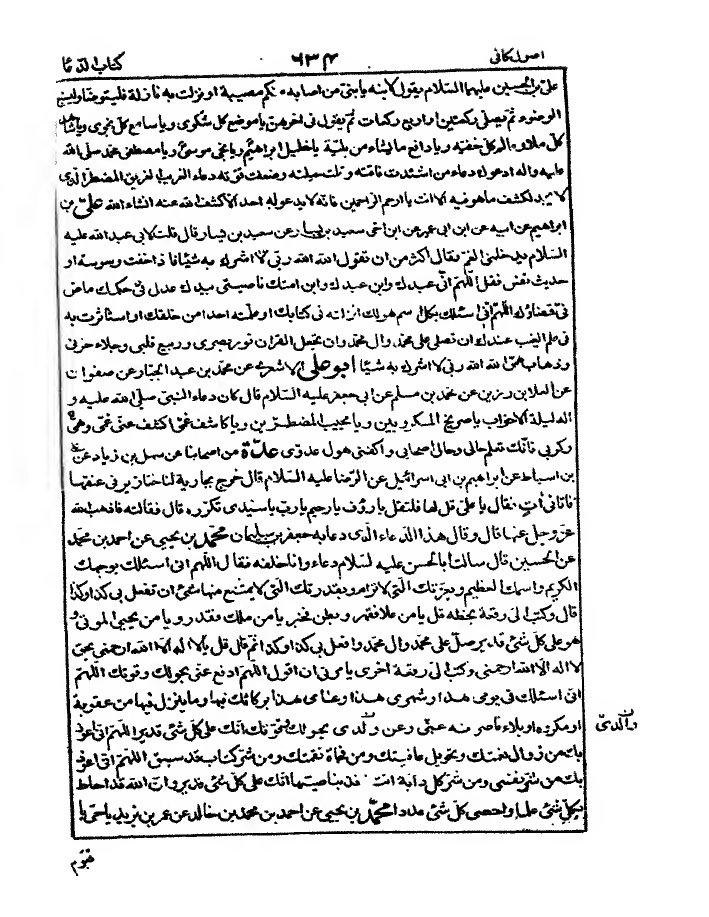 اصول كافى ٦٣٤ كتاب الدعا
على بن الحسين عليهما السلام يقول لابنه يا بنى من اصابه منكم مصيبة او نزلت به نازلة فليتوضأ وليسبغ
الوضوء ثم يصلى ركعتين او اربع ركعات ثم يقول فى اخرهن يا موضع كل شكوى ويا سامع كل نجوى ويا شاهد
كل ملاء وعالم كل خفية ويا دافع ما يشاء من بلية يا خليل ابراهيم ويا نجى موسى ويا مصطفى محمد صلى الله
عليه واله ادعوك دعاء من اشتدت فاقته وقلت حيلته وضعفت قوته دعاء الغريب الغريق المضطر الذى
لا يجد لكشف ما هو فيه الا انت يا ارحم الراحمين فانه لا يدعو به احد الا كشف الله عنه انشاء الله على بن
ابراهيم عن ابيه عن ابن ابى عمير عن ابن اخى سعيد بن يسار عن سعيد بن يسار قال قلت لابى عبد الله عليه
السلام يدخلنى الغم فقال اكثر من ان تقول الله الله ربى لا اشرك به شيئا فاذا خفت وسوسة او
حديث نفس فقل اللهم انى عبدك وابن عبدك وابن امتك ناصيتى بيدك عدل فى حكمك ماض
فى قضاؤك اللهم انى اسئلك بكل اسم هو لك انزلته فى كتابك او علمته احدا من خلقك او استاثرت به
فى علم الغيب عندك ان تصلى على محمد وال محمد وان تجعل القران نور بصرى وربيع قلبى وجلاء حزنى
وذهاب همى الله الله ربى لا اشرك به شيئا ابو على الاشعرى عن محمد بن عبد الجبار عن صفوان
عن العلا بن رزين عن محمد بن مسلم عن ابى جعفر عليه السلام قال كان دعاء النبى صلى الله عليه و
اله ليلة الاحزاب يا صريخ المكروبين ويا مجيب المضطرين ويا كاشف غمى اكشف عنى غمى وهمى
وكربى فانك تعلم حالى وحال اصحابى واكفنى هول عدوى عدة من اصحابنا عن سهل بن زياد عن على
بن اسباط عن ابراهيم بن ابى اسرائيل عن الرضا عليه السلام قال خرج بجارية لنا خنازير فى عنقها
فاتانى آت فقال يا على قل لها فلتقل يا رؤف يا رحيم يا رب يا سيدى تكرره قال فقالته فاذهب الله
عز وجل عنها قال وقال هذا الدعاء الذى دعا به جعفر بن سليمان محمد بن يحيى عن احمد بن محمد
عن الحسين قال سالت ابا الحسن عليه السلام دعاء وانا خلفه فقال اللهم انى اسئلك بوجهك
الكريم واسمك العظيم وبعزتك التى لا ترام وبقدرتك التى لا يمتنع منها شئ ان تفعل بى كذا وكذا
قال وكتب الى رقعة بخطه قل يا من علا فقهر وبطن فخبر يا من ملك فقدر ويا من يحيى الموتى و
هو على كل شئ قدير صل على محمد وال محمد وافعل بى كذا وكذا ثم قال قل يا لا اله الا الله ارحمنى بحق
لا اله الا الله ارحمنى وكتب الى رقعة اخرى يامرنى ان اقول اللهم ادفع عنى بحولك وقوتك اللهم
انى اسئلك فى يومى هذا وشهرى هذا وعامى هذا بركاتك فيها وما ينزل فيها من عقوبة
او مكروه او بلاء فاصرفه عنى وعن ولدى بحولك وقوتك انك على كل شئ قدير اللهم انى اعوذ
والدى
بك من زوال نعمتك وتحويل عافيتك ومن فجأة نقمتك ومن شر كتاب قد سبق اللهم انى اعوذ
بك من شر نفسى ومن شر كل دابة انت اخذ بناصيتها انك على كل شئ قدير وان الله قد احاط
بكل شئ علما واحصى كل شئ عددا محمد بن يحيى عن احمد بن محمد بن خالد عن عمر بن يزيد يا حى يا
قيوم